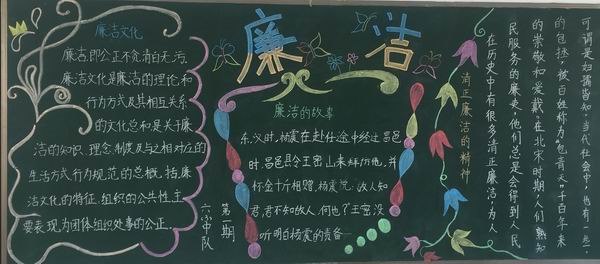 廉洁
廉洁文化
廉洁,即公正不贪,清白无污。
廉洁文化是廉洁的理论和
行为方式及其相互关系
的文化总和,是关于廉
洁的知识、理念、制度及与之相对应的
生活方式、行为规范的总概括,廉
洁文化的特征,组织的公共性,主
要表现为团体组织处事的公正。
廉洁的故事
东汉时,杨震在赴任途中经过昌邑
时,昌邑县令王密山来拜访他,并
怀金十斤相赠。杨震说:故人知
君,君不知故人,何也?王密没
听明白杨震的责备
第一期
六(6)中队
清正廉洁的精神
在历史上有很多清正廉洁,为人
民服务的廉吏,他们总是会得到人民
的崇敬和爱戴。在北宋时期,人们熟知
的包拯,被百姓称为“包青天”,千百年来
可谓是妇孺皆知。当代社会中,也有一些,